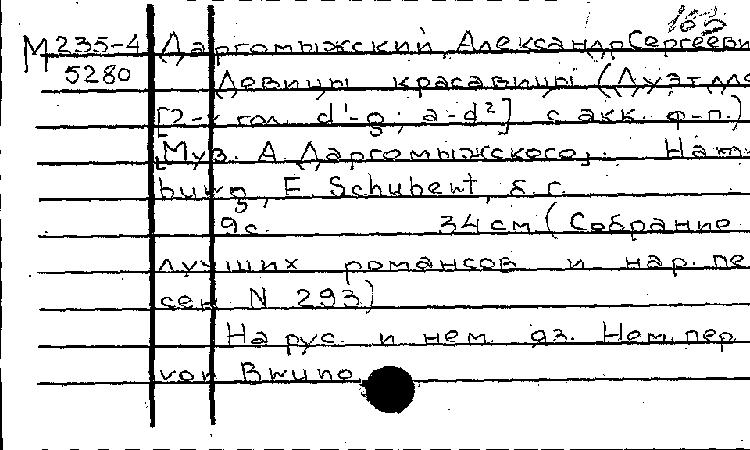 М 235-4 Даргомыжский, Александр Сергееви
5280 Девицы красавицы (Дуэт для
[2-х гол. d¹-g; a-d²] с акк. ф-п.)
[Муз. А. Даргомыжского]. Ham-
burg, E. Schubert, б.г.
9с. 34см (Собрание
лучших романсов и нар. пе-
сен N 293)
На рус. и нем. яз. Нем. пер.
von Bruno.